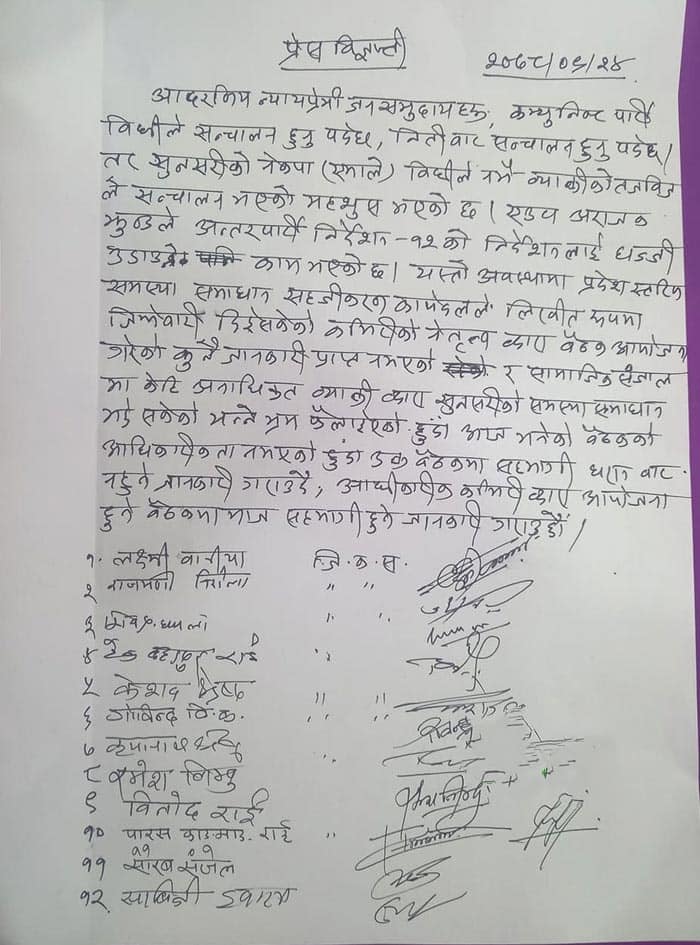 प्रेस विज्ञप्ती
२०७८/०६/२४
आदरणिय न्यायप्रेमी जनसमुदायहरु, कम्युनिष्ट पार्टी
विधीले सन्चालन हुनु पर्दछ, नितीबाट सन्चालन हुनु पर्दछ।
तर सुनसरीको नेकपा (एमाले) विधीले नभै ब्याक्तीको तजविज
ले सन्चालन भएको महसुस भएको छ। एउटा अराजक
झुण्डले अन्तरपार्टी निर्देशन-१२ को निर्देशनलाई धज्जी
उडाउने काम भएको छ। यस्तो अवस्थामा प्रदेश स्तरिय
समस्या समाधान सहजीकरण कार्यदलले लिखीत रुपमा
जिम्मेवारी दिईसकेको कमिटीको नेतृत्व बाट बैठक आयोजना
गरेको कुनै जानकारी प्राप्त नभएको र सामाजिक संजाल
मा केहि अनाधिकृत ब्याक्ती बाट सुनसरीको समस्या समाधान
भई सकेको भन्ने भ्रम फैलाईएको हुंदा आज भनेको बैठकको
आधिकारीकता नभएको हुंदा उक्त बैठकमा सहभागी धरान बाट
नहुने जानकारी गराउदै, आधीकारीक कमिटी बाट आयोजना
हुने बैठकमा मात्र सहभागी हुने जानकारी गराउछौं।
१. लक्ष्मी वानीया जि.क.स.
२ राजमणी निरौला " "
३ " "
४ टेक बहादुर राई "
५ केशव श्रेष्ठ " "
६ गोविन्द वि.क. " "
७ "
८ रमेश लिम्बु
९ विनोद राई
१० पारस राई "
११ संजेल
१२.